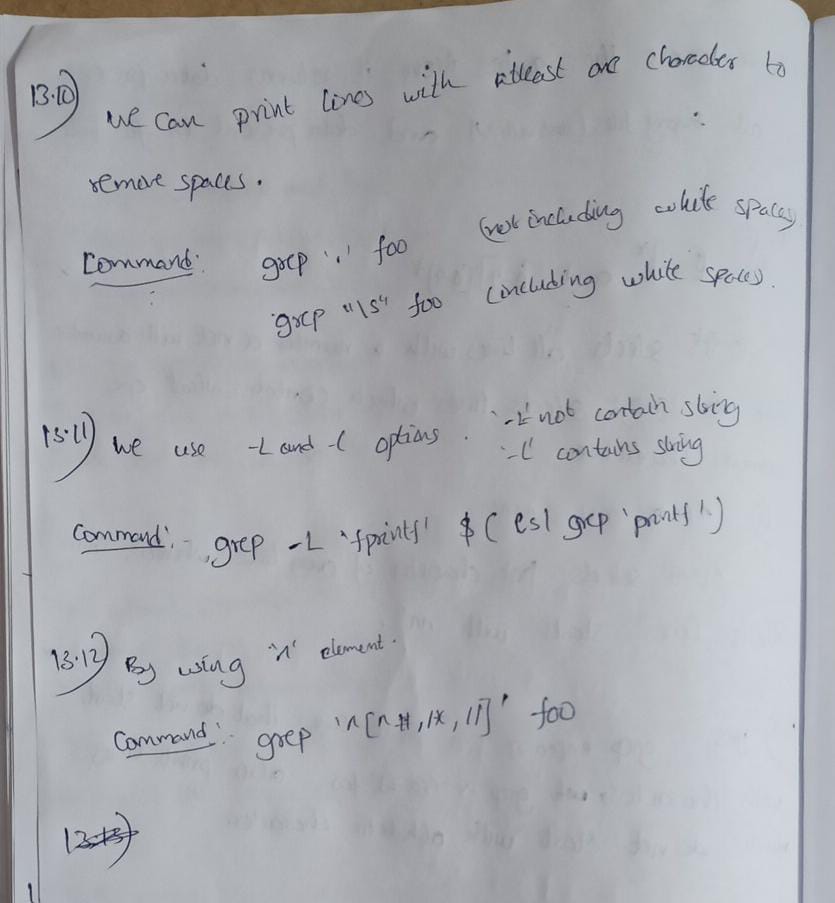 13.10)
we can print lines with atleast one character to
remove spaces.
Command: grep '.' foo (not including white spaces)
grep "\S" foo (including white spaces).
13.11) we use -L and -l options. '-L' not contain string
'-l' contains string
Command:- grep -L 'fprintf' $( ls | grep 'printf'.)
13.12) By using '^' element.
Command:- grep '^[^#,/*,//]' foo